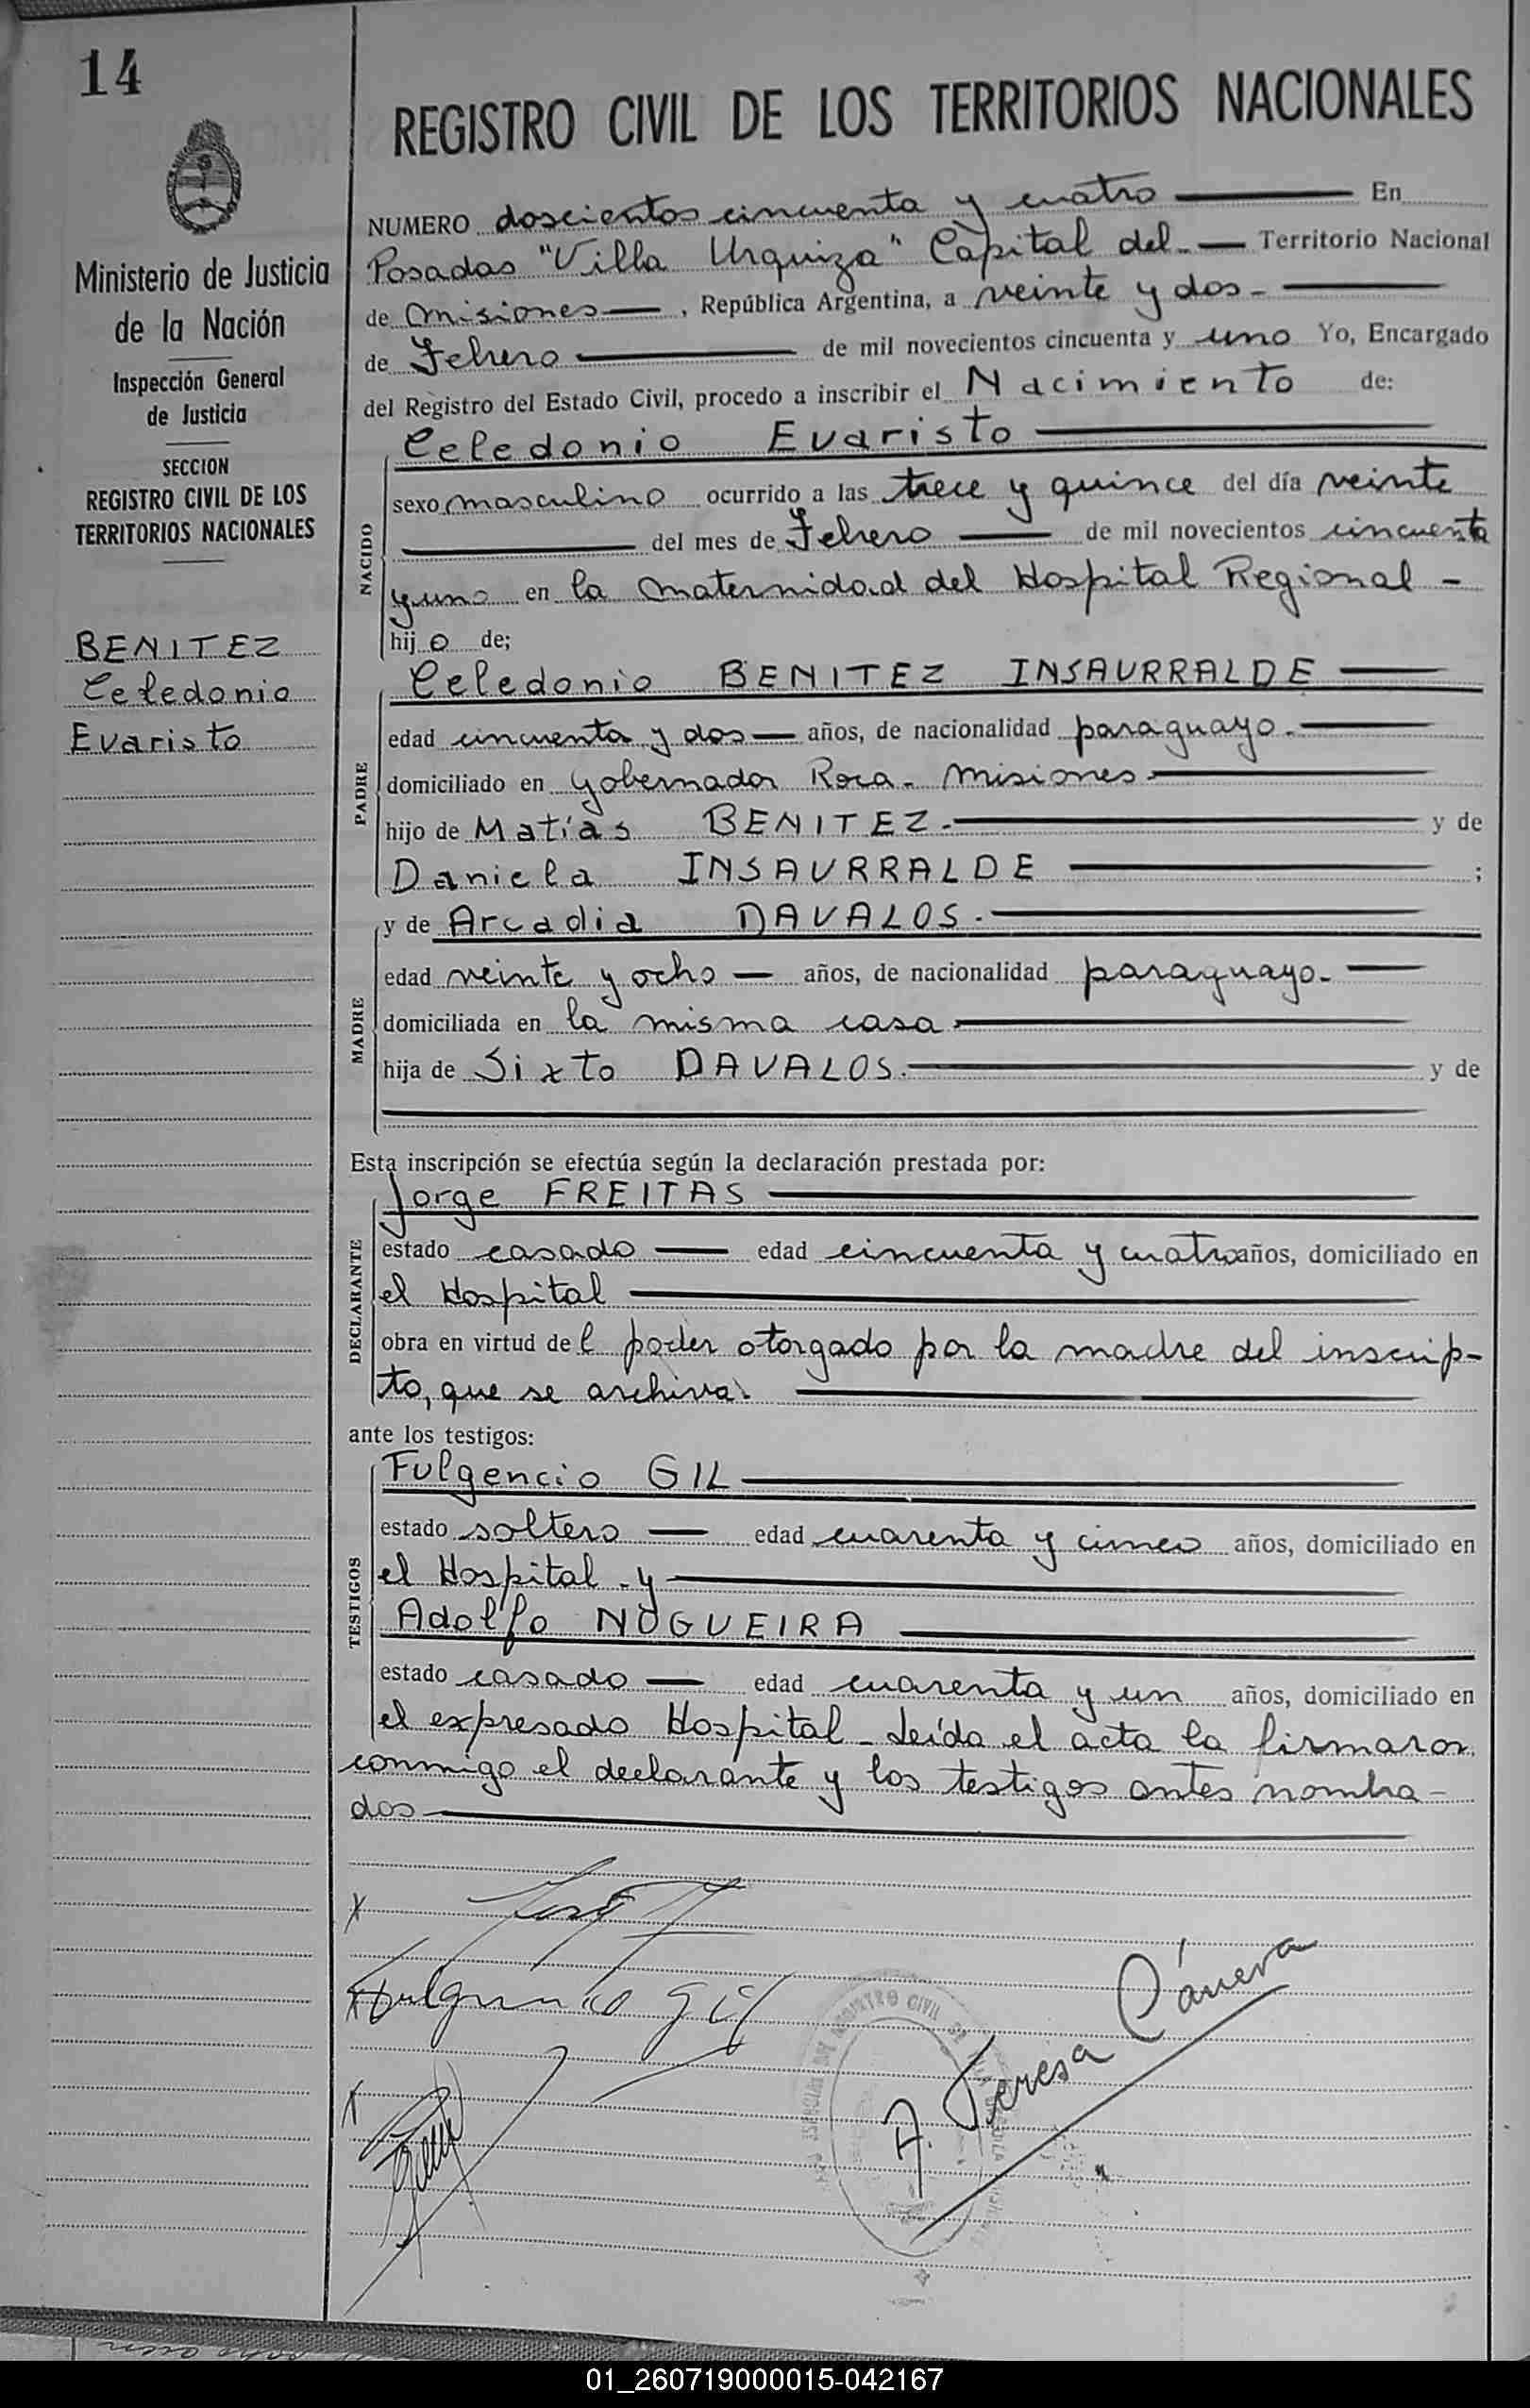 14
REGISTRO CIVIL DE LOS TERRITORIOS NACIONALES
Ministerio de Justicia
de la Nación
Inspección General
de Justicia
SECCION
REGISTRO CIVIL DE LOS
TERRITORIOS NACIONALES
BENITEZ
Celedonio
Evaristo
NUMERO doscientos cincuenta y cuatro En
Posadas "Villa Urquiza" Capital del - Territorio Nacional
de Misiones, República Argentina, a veinte y dos -
de Febrero de mil novecientos cincuenta y uno Yo, Encargado
del Registro del Estado Civil, procedo a inscribir el Nacimiento de:
Celedonio Evaristo
NACIDO
sexo masculino ocurrido a las trece y quince del día veinte
del mes de Febrero de mil novecientos cincuenta
y uno en la Maternidad del Hospital Regional -
hijo de;
Celedonio BENITEZ INSAURRALDE
PADRE
edad cincuenta y dos años, de nacionalidad paraguayo.
domiciliado en Gobernador Roca - Misiones
hijo de Matías BENITEZ. y de
Daniela INSAURRALDE ;
y de Arcadia DAVALOS.
MADRE
edad veinte y ocho años, de nacionalidad paraguayo.
domiciliada en la misma casa
hija de Sixto DAVALOS. y de
Esta inscripción se efectúa según la declaración prestada por:
Jorge FREITAS
DECLARANTE
estado casado edad cincuenta y cuatro años, domiciliado en
el Hospital
obra en virtud del poder otorgado por la madre del inscrip-
to, que se archiva.
ante los testigos:
Fulgencio GIL
TESTIGOS
estado soltero edad cuarenta y cinco años, domiciliado en
el Hospital - y
Adolfo NOGUEIRA
estado casado edad cuarenta y un años, domiciliado en
el expresado Hospital - Leída el acta la firmaron
conmigo el declarante y los testigos antes nombra-
dos
X
Fulgencio Gil
X
REGISTRO CIVIL
A. Teresa Cánera
01_260719000015-042167